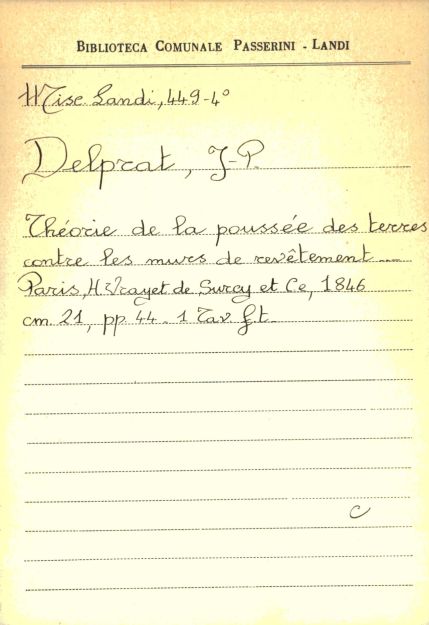 BIBLIOTECA COMUNALE PASSERINI - LANDI
Misc Landi, 449-4°
Delprat, J-P.
Théorie de la poussée des terres
contre les murs de revêtement
Paris, H. Vrayet de Surcy et Ce, 1846
cm. 21, pp 44. 1 Tav f.t.
C